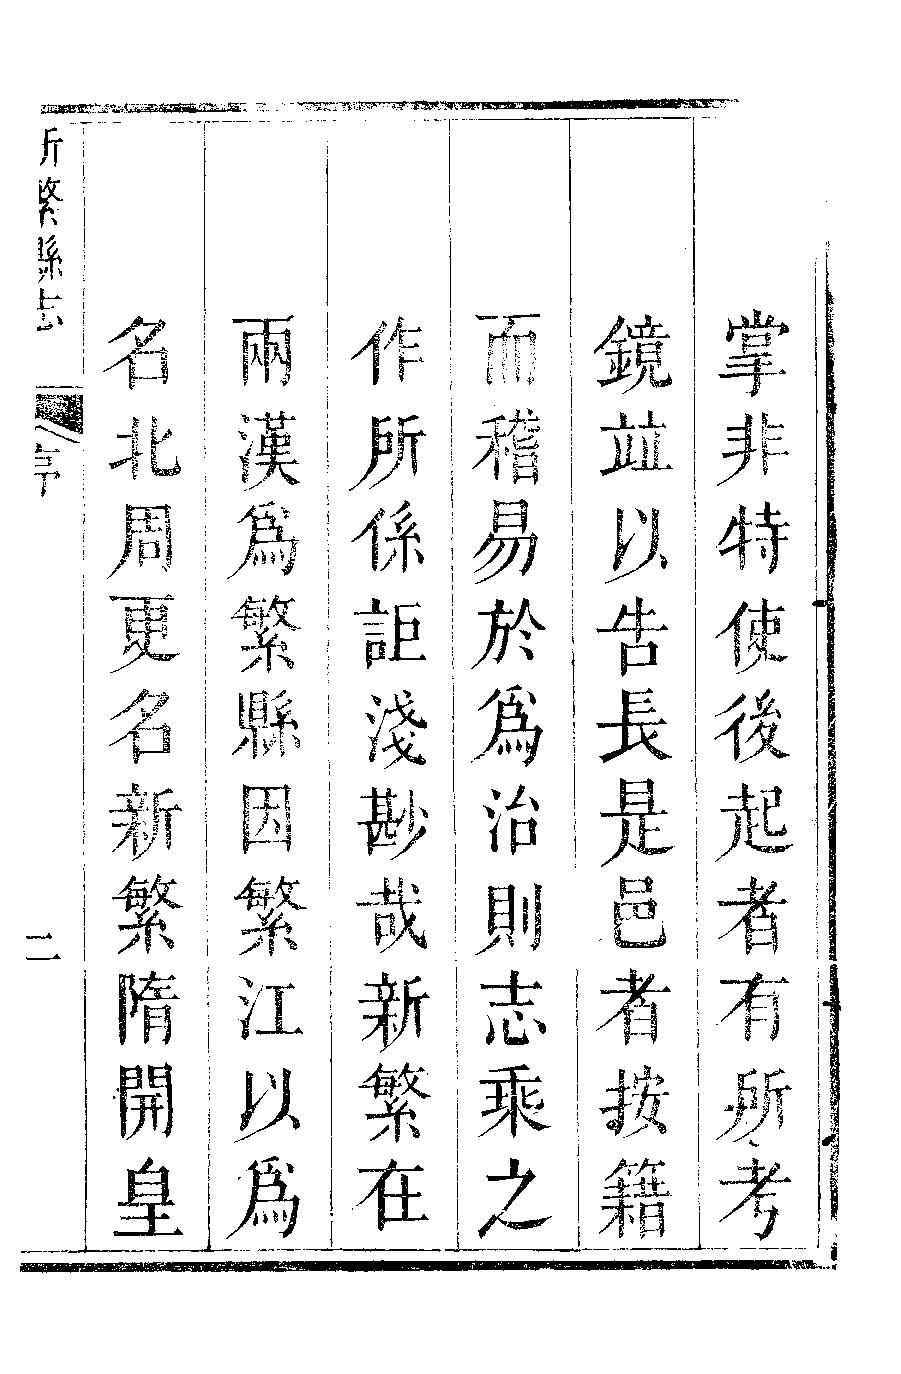 掌非特使後起者有所考
鏡並以告長是邑者按籍
而稽易於為治則志乘之
作所係詎淺尠哉新繁在
兩漢為繁縣因繁江以為
名北周更名新繁隋開皇
新繁縣志
序
二